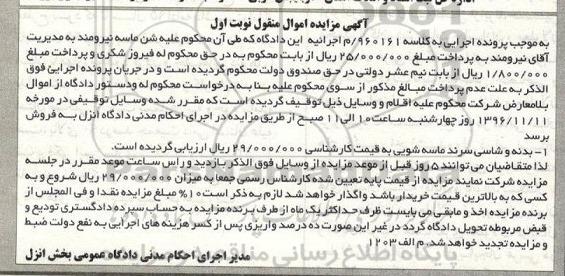 آگهی مزایده اموال منقول نوبت اول
به موجب پرونده اجرایی به کلاسه ۹۶۰۱۶۱/م اجرائیه این دادگاه که طی آن محکوم علیه شن ماسه نیرومند به مدیریت
آقای نیرومند به پرداخت مبلغ ۲۵/۰۰۰/۰۰۰ ریال از بابت محکوم به در حق محکوم له فیروز شکری و پرداخت مبلغ
۱/۸۰۰/۰۰۰ ریال از بابت نیم عشر دولتی در حق صندوق دولت محکوم گردیده است و در جریان پرونده اجرایی فوق
الذکر به علت عدم پرداخت مبالغ مذکور از سوی محکوم علیه بنا به درخواست محکوم له و دستور دادگاه از اموال
بلامعارض شرکت محکوم علیه اقلام و وسایل ذیل توقیف گردیده است که مقرر شده وسایل توقیفی در مورخه
۱۳۹۶/۱۱/۱۱ روز چهارشنبه ساعت ۱۰ الی ۱۱ صبح از طریق مزایده در اجرای احکام مدنی دادگاه انزل به فروش
برسد
۱- بدنه و شاسی سرند ماسه شویی به قیمت کارشناسی ۲۹/۰۰۰/۰۰۰ ریال ارزیابی گردیده است.
لذا متقاضیان می توانند ۵ روز قبل از موعد مزایده از وسایل فوق الذکر بازدید و راس ساعت موعد مقرر در جلسه
مزایده شرکت نمایند مزایده از قیمت پایه تعیین شده کارشناس رسمی جمعا به میزان ۲۹/۰۰۰/۰۰۰ ریال شروع و به
کسی که به بالاترین قیمت خریدار باشد واگذار خواهد شد لازم به ذکر است ۱۰% مبلغ مزایده نقدا و فی المجلس از
برنده مزایده اخذ و مابقی می بایست ظرف حداکثر یک ماه از طرف برنده مزایده به حساب سپرده دادگستری تودیع و
قبض مربوطه تحویل دادگاه گردد در غیر این صورت ده درصد واریزی پس از کسر هزینه های اجرایی به نفع دولت ضبط
و مزایده تجدید خواهد شد. م الف ۱۲۰۳
مدیر اجرای احکام مدنی دادگاه عمومی بخش انزل
پایگاه اطلاع رسانی مناقصه و مزایده